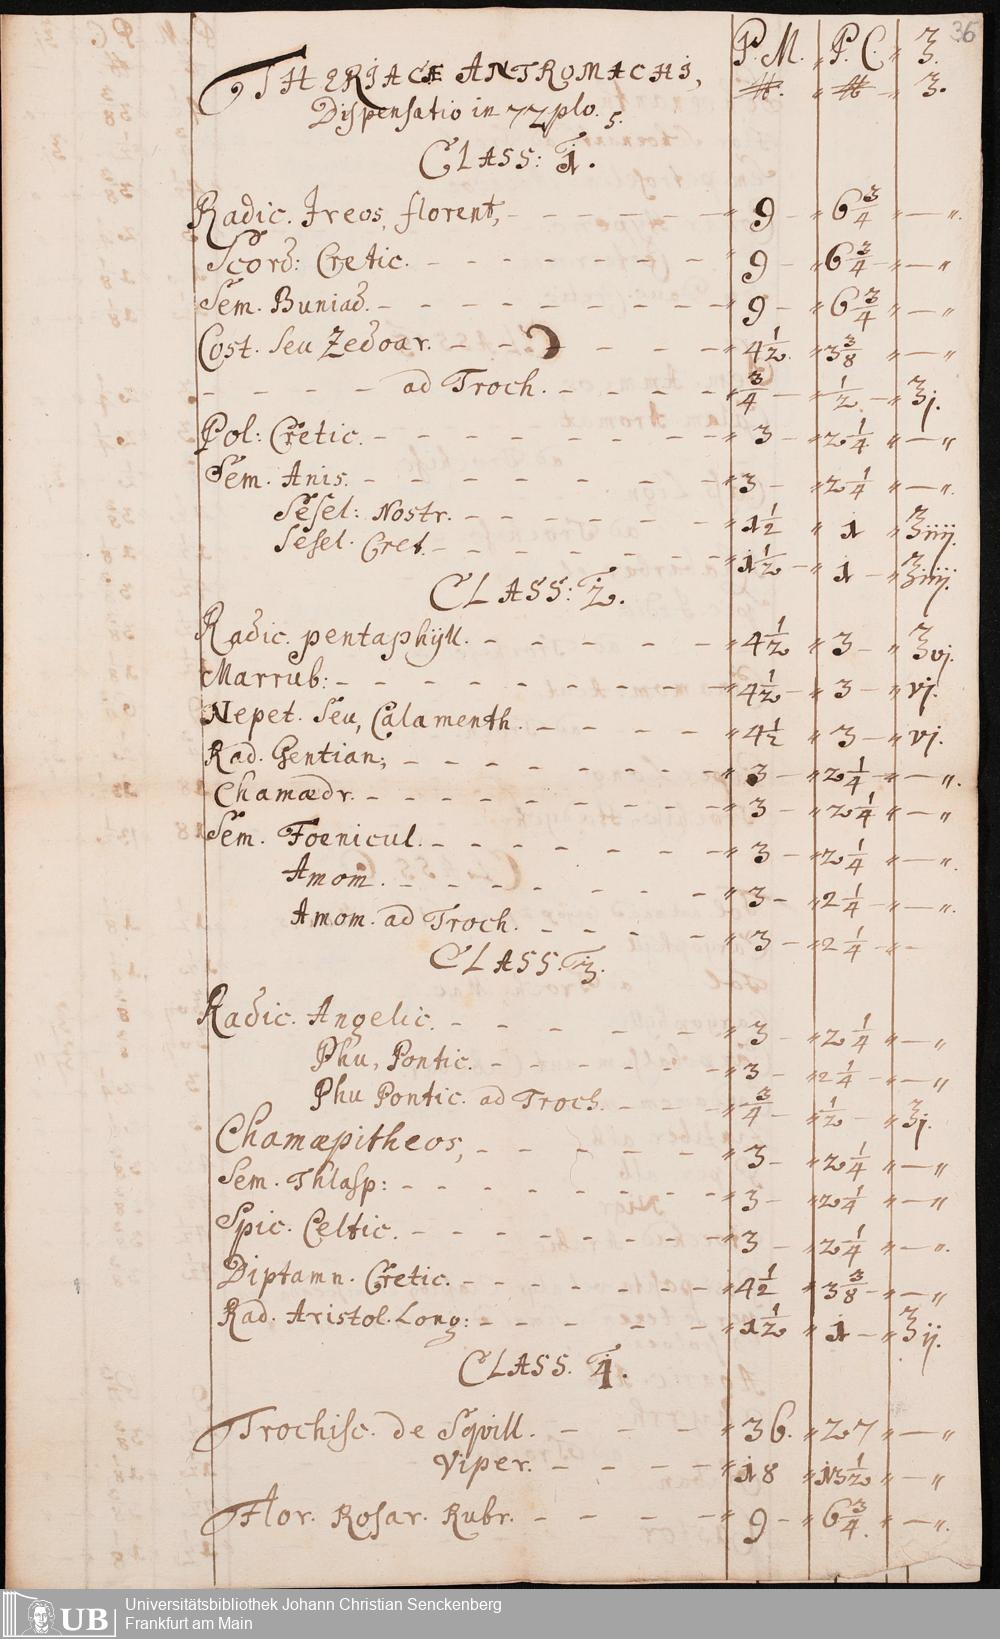 36
P. M. „ P. C. „ ℥.
THERIACÆ ANTROMACHI, ℔. „ ℔ – „ ʒ.
Dispensatio in 72plo.
CLASS: 1.
Radic. Ireos, florent, – „ 9 – „ 6¾ „ — „.
Scord: Cretic. – „ 9 – „ 6¾ – „ — „
Sem. Buniad. – „ 9 – „ 6¾ „ — „
Cost. seu Zedoar. – „ 4½. „ 3⅜ „ — „
ad Troch. – „ ¾ – „ ½ – „ ℥j.
Pol: Cretic. – „ 3 – „ 2¼ „ — „
Sem. Anis. – „ 3 – „ 2¼ „ — „.
Sesel: Nostr. – „ 1½ „ 1 „ ℥iiij.
Sesel. Cret. – „ 1½ – „ 1 – „ ℥iiij.
CLASS: 2.
Radic. pentaphÿll. – „ 4½ „ 3 – „ ℥vj.
Marrub: – „ 4½ – „ 3 – „ vj.
Nepet. seu, Calamenth. – „ 4½ „ 3 – „ vj.
Rad. Gentian; – „ 3 – „ 2¼ – „ — „.
Chamædr. – „ 3 – „ 2¼ „ — „
Sem. Foenicul. – „ 3 – „ 2¼ „ — „.
Amom. – „ 3 – „ 2¼ – „ — „.
Amom. ad Troch. – „ 3 – „ 2¼ – „ –
CLASS. 3.
Radic. Angelic. – „ 3 – „ 2¼ „ — „
Phu, Pontic. – „ 3 – „ 2¼ – „ — „
Phu Pontic. ad Troch. – „ ¾ – „ ½ – „ ℥j.
Chamæpitheos, – „ 3 – „ 2¼ „ — „
Sem. Thlasp: – „ 3 – „ 2¼ „ — „
Spic. Celtic. – „ 3 – „ 2¼ „ — „.
Diptamn. Cretic. – „ 4½ „ 3⅜ – „ — „
Rad. Aristol. Long: – „ 1½ „ 1 – „ ℥ij.
CLASS. 4.
Trochisc. de Sqvill. – „ 36. „ 27 „ — „
Viper. – „ 18 „ 13½ „ — „
Flor. Rosar. Rubr. – „ 9 – „ 6¾. „ — „.
UB
Universitätsbibliothek Johann Christian Senckenberg
Frankfurt am Main